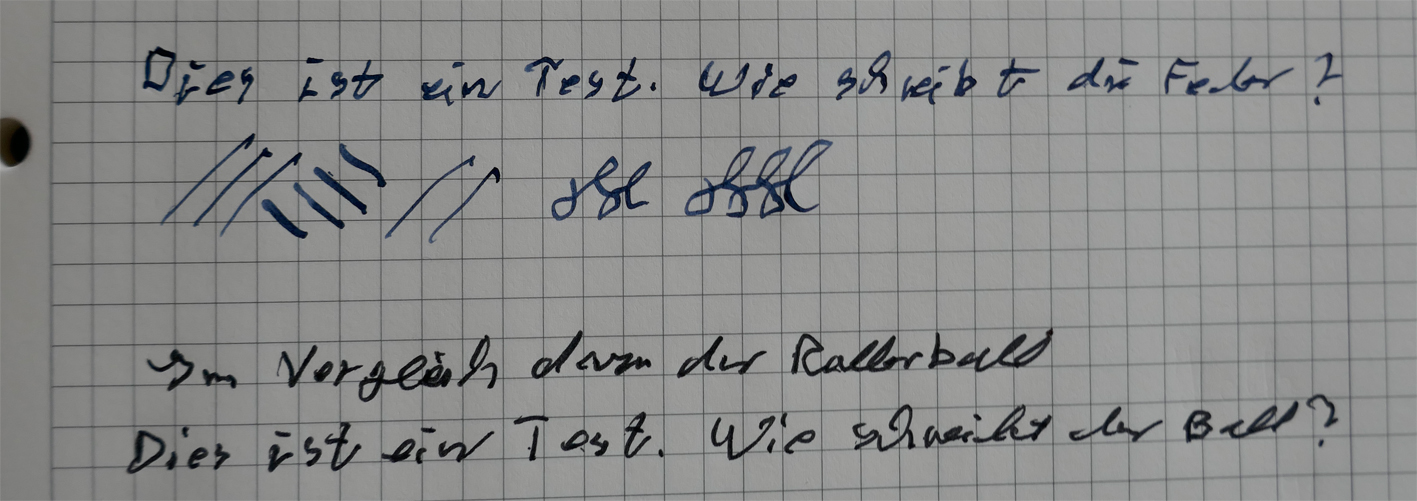 Dies ist ein Test. Wie schreibt die Feder?
Im Vergleich dazu der Rollerball
Dies ist ein Test. Wie schreibt der Ball?